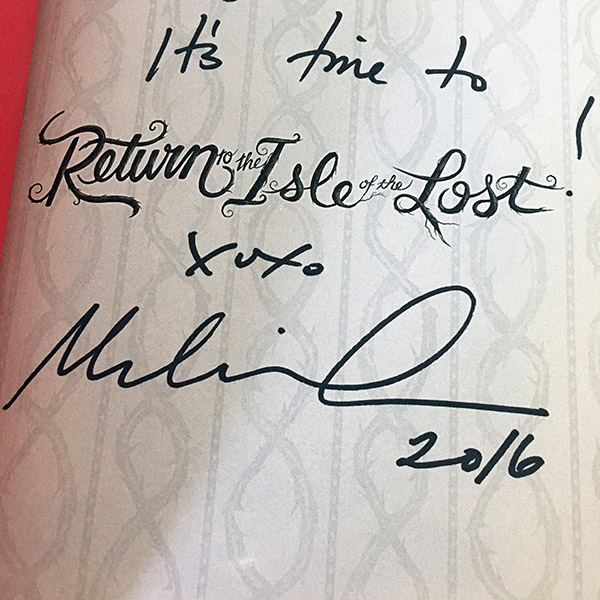 It's time to
Return to the Isle of the Lost !
xoxo
2016